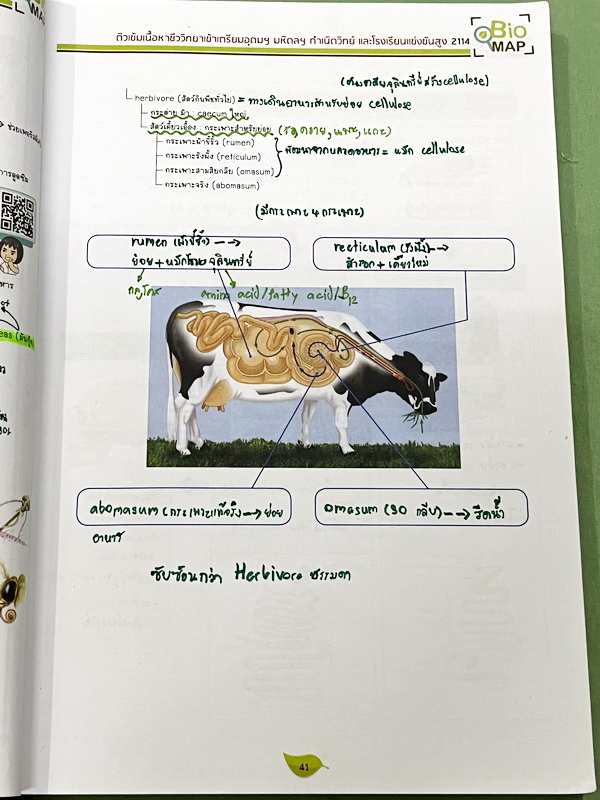 ติวเข้มเนื้อหาชีววิทยาเข้าเตรียมอุดมฯ มหิดลฯ กำเนิดวิทย์ และโรงเรียนแข่งขันสูง 2114
Bio
MAP
จุลินทรีย์ สร้าง cellulose)
herbivore (สัตว์กินพืชทั่วไป) = ทางเดินอาหารสำหรับย่อย cellulose
กระต่าย ม้า : caecum ใหญ่
สัตว์เคี้ยวเอื้อง : กระเพาะสำหรับย่อย (วัว, ควาย, แพะ, แกะ)
กระเพาะผ้าขี้ริ้ว (rumen)
กระเพาะรังผึ้ง (reticulum)
พัฒนาจากหลอดอาหาร = หมัก cellulose
กระเพาะสามสิบกลีบ (omasum)
กระเพาะจริง (abomasum)
(มีกระเพาะ 4 กระเพาะ)
rumen (ผ้าขี้ริ้ว) →
ย่อย + หมักโดย จุลินทรีย์
recticulum (รังผึ้ง) →
สำรอก + เคี้ยวใหม่
กลูโคส
amino acid/fatty acid/B12
abomasum (กระเพาะแท้จริง) → ย่อย
อาหาร
omasum (30 กลีบ) → รีดน้ำ
ซับซ้อนกว่า Herbivore ธรรมดา
41
MAP
ช่วย
การดูดซึม
หาร
eas